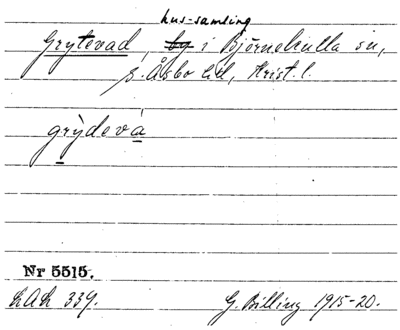 hus-samling
Grytevad, by i Björnekulla sn,
S. Åsbo hd, Krist. l.
grỳdevá
Nr 5515.
LAL 339. G. Billing 1915-20.